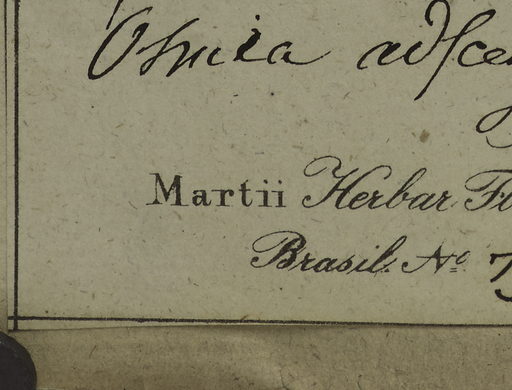 Osmia adsce
Martii Herbar Fl
Brasil. No. 7